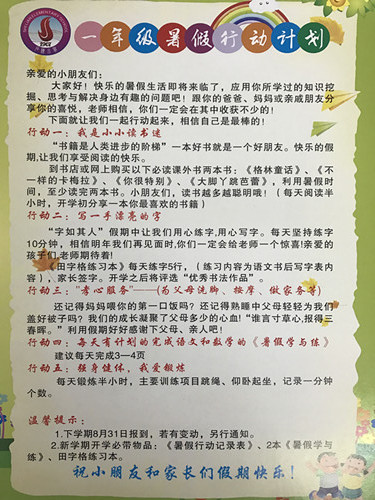 一年级暑假行动计划
亲爱的小朋友们：
大家好！快乐的暑假生活即将来临了，应用你所学过的知识挖
掘、思考与解决身边有趣的问题吧！跟你的爸爸、妈妈或亲戚朋友分
享你的喜悦，老师相信，你们一定会在其中收获不少的！
下面就让我们一起行动起来，相信自己是最棒的！
行动一：我是小小读书迷
“书籍是人类进步的阶梯”一本好书就是一个好朋友。快乐的假
期，让我们享受阅读的快乐。
到书店或网上购买以下必读课外书两本书：《格林童话》、《不
一样的卡梅拉》、《你很特别》、《大脚丫跳芭蕾》，利用暑假时
间，至少读完两本书。小朋友们，读书越多越聪明哦！（每天阅读半
小时，开学初分享一本你最喜欢的书籍）
行动二：写一手漂亮的字
“字如其人”假期中让我们用心练字，用心写字。每天坚持练字
10分钟，相信明年我们再见面时，你们一定会给老师一个惊喜！亲爱的
孩子们，老师期待着！
《田字格练习本》每天练字5行，（练习内容为语文书后写字表内
容），家长签字。开学之后将评选“优秀书法作品”。
行动三：“孝心服务”——（为父母洗脚、按摩、做家务等）
还记得妈妈喂你的第一口饭吗？还记得熟睡中父母轻轻为我们
盖好被子吗？我们的成长凝聚了父母多少的心血！“谁言寸草心，报得三
春晖。”利用假期好好感谢下父母、亲人吧！
行动四：每天有计划的完成语文和数学的《暑假学与练》
建议每天完成3—4页
行动五：强身健体，我爱锻炼
每天锻炼半小时，主要训练项目跳绳、仰卧起坐，记录一分钟
个数。
温馨提示：
1.下学期8月31日报到，若有变动，另行通知。
2.新学期开学必带物品：《暑假行动记录表》、2本《暑假学与
练》、田字格练习本。
祝小朋友和家长们假期快乐！